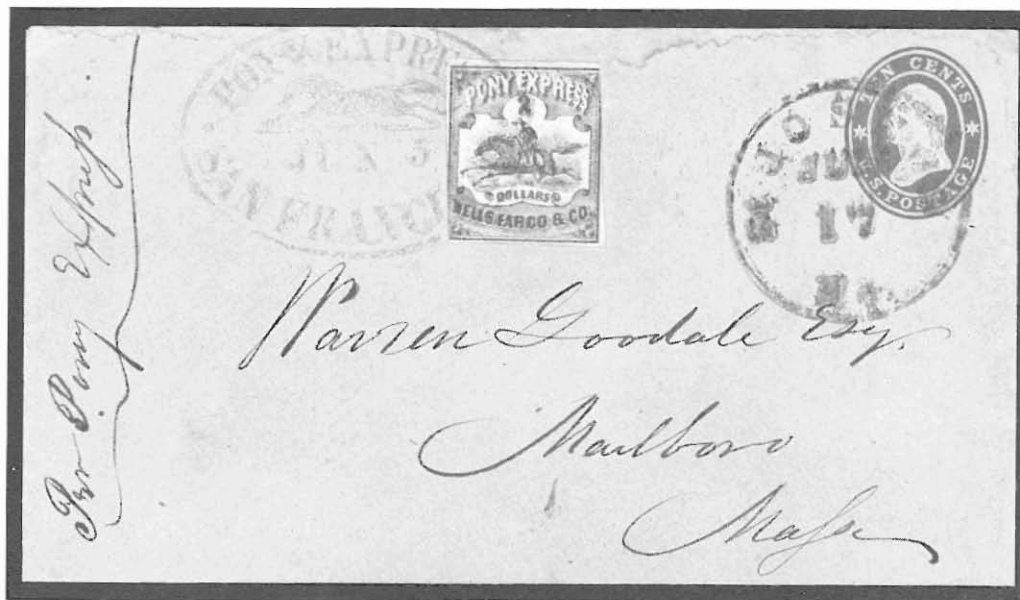 Per Pony Express
PONY EXPRE
SAN FRANCI
PONY EXPRESS
2
DOLLARS
WELLS FARGO & CO.
TEN CENTS
U.S. POSTAGE
JO
17
Warren Goodale Esq.
Marlboro
Mass